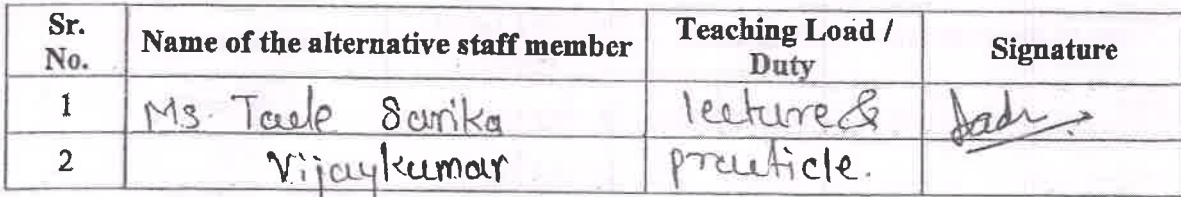 Sr. No. Name of the alternative staff member Teaching Load / Duty Signature
1 Ms. Taele Sarika lecture &
2 Vijaykumar prauticle.